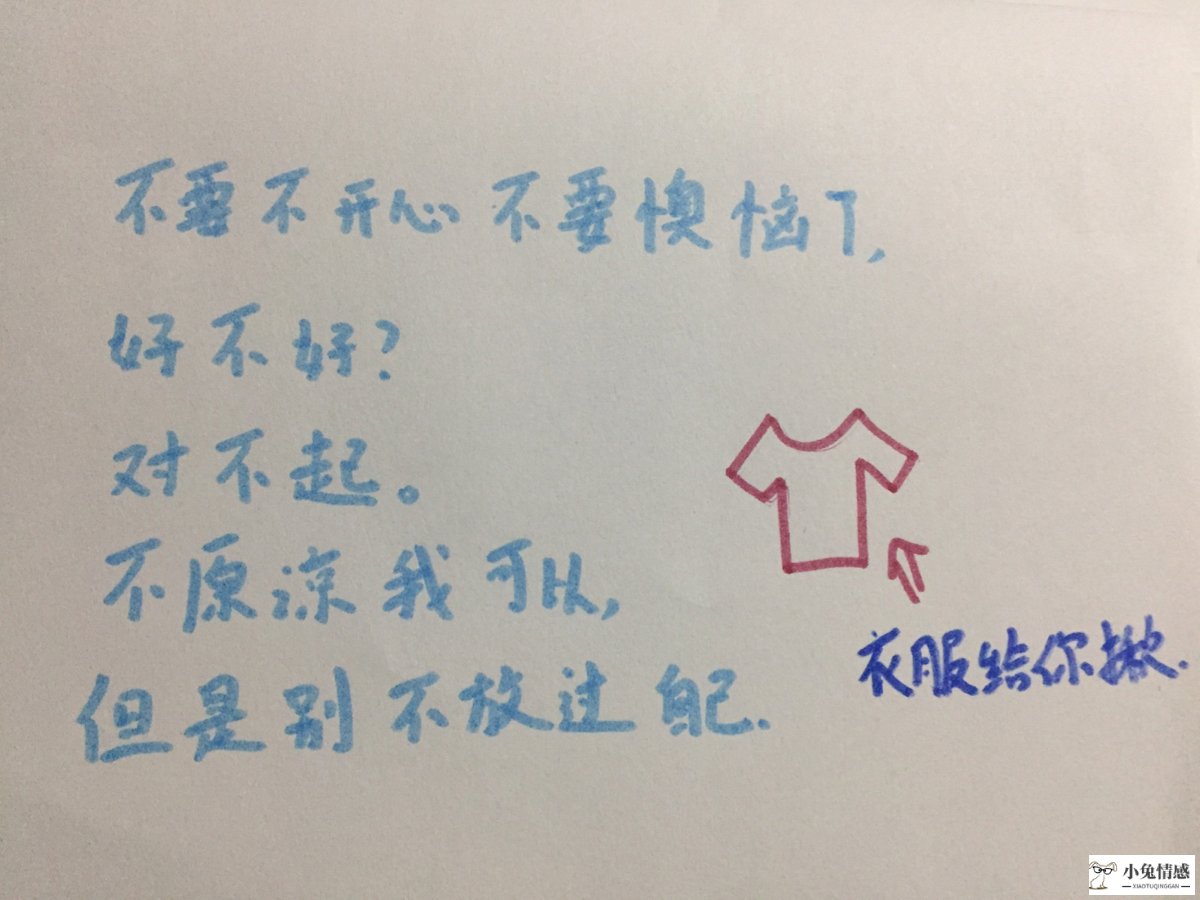 不要不开心 不要懊恼了,
好不好?
对不起。
不原谅我可以,
但是别不放过自己.
衣服给你揪.
小兔情感
XIAOTUQINGGAN